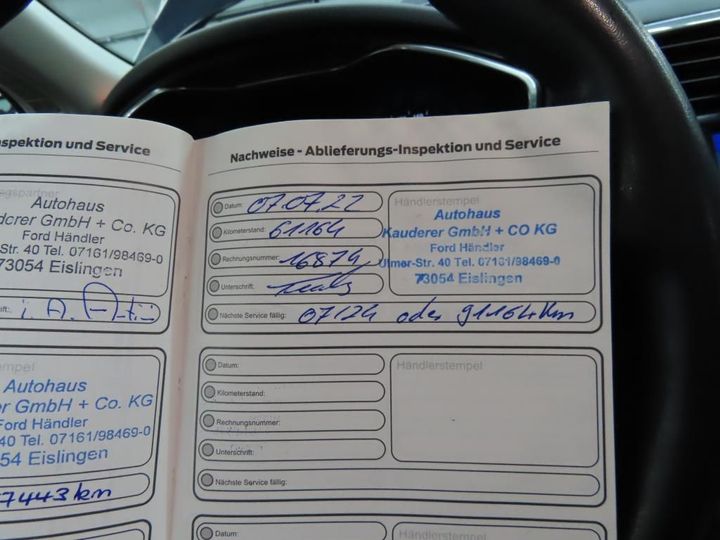 spektion und Service
Autohaus
derer GmbH + Co. KG
Ford Händler
Str. 40 Tel. 07161/98469-0
73054 Eislingen
i. A.
Autohaus
rer GmbH + Co. KG
Ford Händler
40 Tel. 07161/98469-0
54 Eislingen
7443 km
Nachweise - Ablieferungs-Inspektion und Service
Datum: 07.07.22
Kilometerstand: 61164
Rechnungsnummer: 16874
Unterschrift:
Händlerstempel
Autohaus
Kauderer GmbH + CO KG
Ford Händler
Ulmer-Str. 40 Tel. 07161/98469-0
73054 Eislingen
Nächste Service fällig: 07/24 oder 91164 km
Datum:
Kilometerstand:
Rechnungsnummer:
Unterschrift:
Händlerstempel
Nächste Service fällig:
Datum:
Händlerstempel